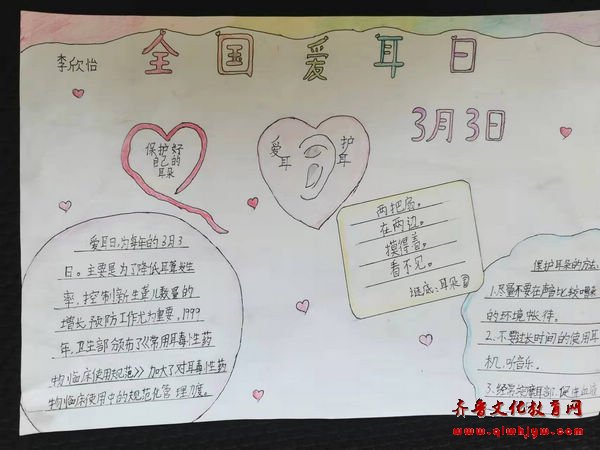 全国爱耳日
李欣怡
3月3日
保护好
自己的
耳朵
爱
耳
护
耳
两把扇。
在两边。
摸得着。
看不见。
谜底:耳朵
爱耳日,为每年的3月3
日。主要是为了降低耳聋发生
率,控制新生聋儿数量的
增长,预防工作尤为重要,1999
年,卫生部颁布了《常用耳毒性药
物临床使用规范》加大了对耳毒性药
物临床使用中的规范化管理力度。
保护耳朵的方法:
1.尽量不要在声音比较嘈杂
的环境中待。
2.不要过长时间的使用耳
机,听音乐。
3.经常按摩耳部,促进血液
齐鲁文化教育网
www.qlwhjyw.com